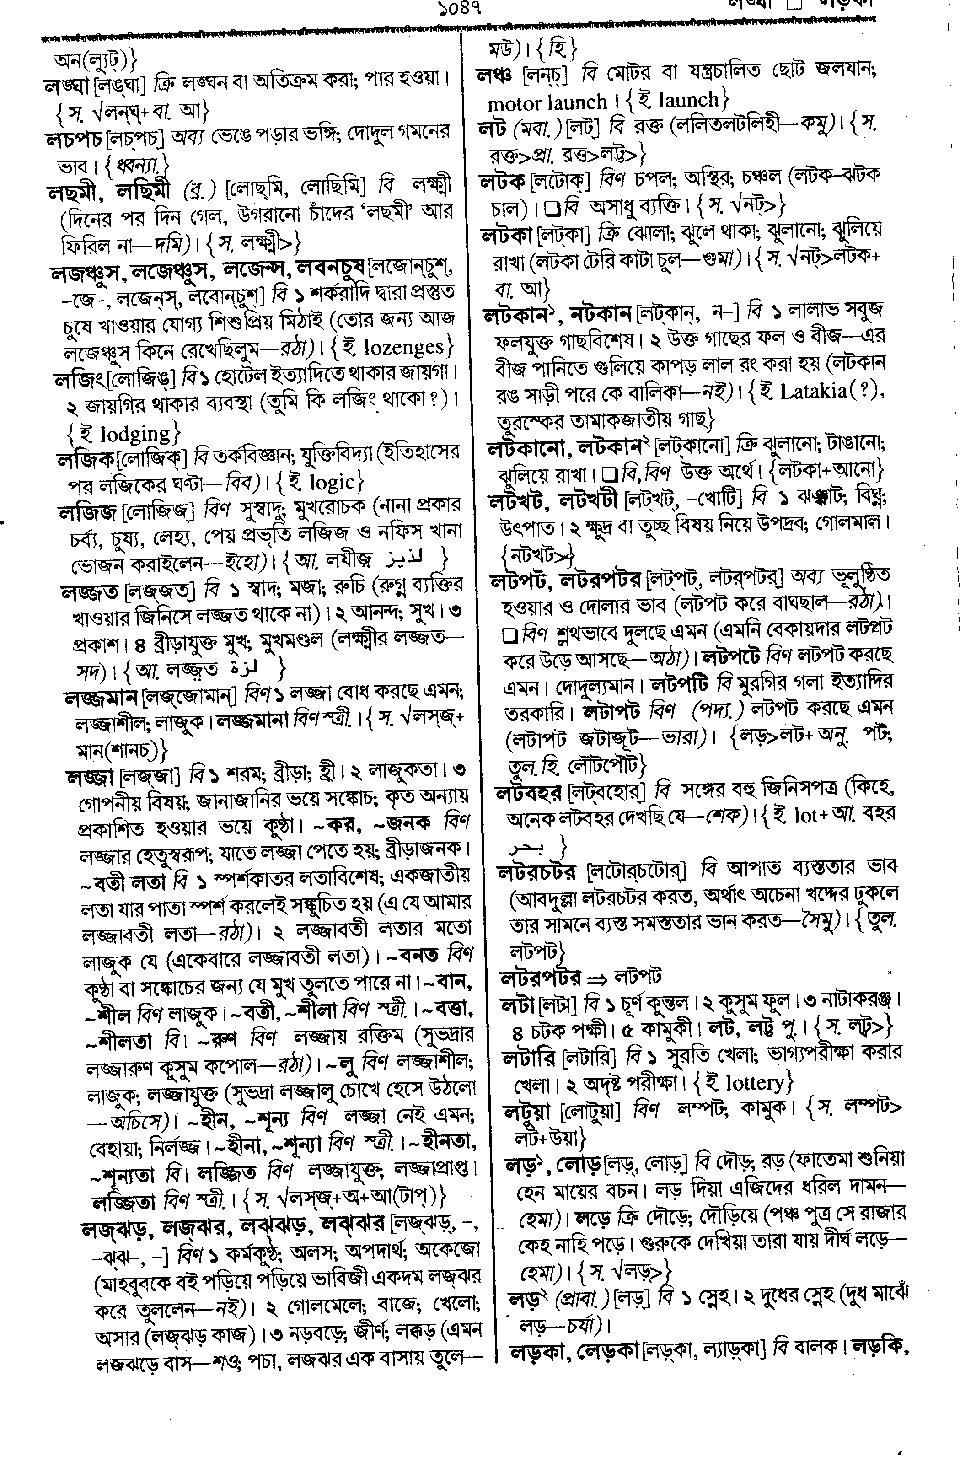 ১০৪৭
লঙ্ঘা □ লড়কা
অন(ল্যুট)}
লঙ্ঘা [লঙ্‌ঘা] ক্রি লঙ্ঘন বা অতিক্রম করা; পার হওয়া।
{স. √লন্‌ঘ্+বা. আ}
লচপচ [লচ্‌পচ্] অব্য ভেঙে পড়ার ভঙ্গি; দোদুল গমনের
ভাব। {ধ্বন্যা.}
লছমী, লছিমী (ব্র.) [লোছ্‌মি, লোছিমি] বি লক্ষ্মী
(দিনের পর দিন গেল, উগরানো চাঁদের ‘লছমী’ আর
ফিরিল না—দমি)। {স. লক্ষ্মী>}
লজঞ্চুস, লজেঞ্চুস, লজেন্স, লবনচুষ [লজোন্‌চুশ্,
-জে-, লজেন্‌স্, লবোন্‌চুশ্] বি ১ শর্করাদি দ্বারা প্রস্তুত
চুষে খাওয়ার যোগ্য শিশুপ্রিয় মিঠাই (তোর জন্য আজ
লজেঞ্চুস কিনে রেখেছিলুম—রঠা)। {ই lozenges}
লজিং [লোজিঙ্] বি ১ হোটেল ইত্যাদিতে থাকার জায়গা।
২ জায়গির থাকার ব্যবস্থা (তুমি কি লজিং থাকো?)।
{ই lodging}
লজিক [লোজিক্] বি তর্কবিজ্ঞান; যুক্তিবিদ্যা (ইতিহাসের
পর লজিকের ঘণ্টা—বিব)। {ই logic}
লজিজ [লোজিজ্] বিণ সুস্বাদু; মুখরোচক (নানা প্রকার
চর্ব্য, চুষ্য, লেহ্য, পেয় প্রভৃতি লজিজ ও নফিস খানা
ভোজন করাইলেন—ইহো)। {আ. লযীজ় لذيذ}
লজ্জত [লজ্‌জত্] বি ১ স্বাদ; মজা; রুচি (রুগ্ন ব্যক্তির
খাওয়ার জিনিসে লজ্জত থাকে না)। ২ আনন্দ; সুখ। ৩
প্রকাশ। ৪ ব্রীড়াযুক্ত মুখ; মুখমণ্ডল (লক্ষ্মীর লজ্জত—
সদ)। {আ. লজ্জ়ত لزة}
লজ্জমান [লজ্‌জোমান্] বিণ ১ লজ্জা বোধ করছে এমন;
লজ্জাশীল; লাজুক। লজ্জমানা বিণ স্ত্রী.। {স. √লস্‌জ্+
মান(শানচ্)}
লজ্জা [লজ্‌জা] বি ১ শরম; ব্রীড়া; হ্রী। ২ লাজুকতা। ৩
গোপনীয় বিষয়; জানাজানির ভয়ে সঙ্কোচ; কৃত অন্যায়
প্রকাশিত হওয়ার ভয়ে কুণ্ঠা। ~কর, ~জনক বিণ
লজ্জার হেতুস্বরূপ; যাতে লজ্জা পেতে হয়; ব্রীড়াজনক।
~বতী লতা বি ১ স্পর্শকাতর লতাবিশেষ; একজাতীয়
লতা যার পাতা স্পর্শ করলেই সঙ্কুচিত হয় (এ যে আমার
লজ্জাবতী লতা—রঠা)। ২ লজ্জাবতী লতার মতো
লাজুক যে (একেবারে লজ্জাবতী লতা)। ~বনত বিণ
কুণ্ঠা বা সঙ্কোচের জন্য যে মুখ তুলতে পারে না। ~বান,
~শীল বিণ লাজুক। ~বতী, ~শীলা বিণ স্ত্রী.। ~বত্তা,
~শীলতা বি। ~রুণ বিণ লজ্জায় রক্তিম (সুভদ্রার
লজ্জারুণ কুসুম কপোল—রঠা)। ~লু বিণ লজ্জাশীল;
লাজুক; লজ্জাযুক্ত (সুভদ্রা লজ্জালু চোখে হেসে উঠলো
—অচিসে)। ~হীন, ~শূন্য বিণ লজ্জা নেই এমন;
বেহায়া; নির্লজ্জ। ~হীনা, ~শূন্যা বিণ স্ত্রী.। ~হীনতা,
~শূন্যতা বি। লজ্জিত বিণ লজ্জাযুক্ত; লজ্জাপ্রাপ্ত।
লজ্জিতা বিণ স্ত্রী.। {স. √লস্‌জ্+অ+আ(টাপ্)}
লজ্‌ঝড়, লজ্‌ঝর, লঝ্‌ঝড়, লঝ্‌ঝর [লজ্‌ঝড়্, -,
-ঝ্‌ঝ-, -] বিণ ১ কর্মকুণ্ঠ; অলস; অপদার্থ; অকেজো
(মাহবুবকে বই পড়িয়ে পড়িয়ে ভাবিজী একদম লজ্‌ঝর
করে তুললেন—নই)। ২ গোলমেলে; বাজে; খেলো;
অসার (লজ্‌ঝড় কাজ)। ৩ নড়বড়ে; জীর্ণ; লক্কড় (এমন
লজঝড়ে বাস—শও; পচা, লজঝর এক বাসায় তুলে—
মউ)। {হি}
লঞ্চ [লন্‌চ্] বি মোটর বা যন্ত্রচালিত ছোট জলযান;
motor launch। {ই launch}
লট (মবা.) [লট্] বি রক্ত (ললিতলটলিহী—কমু)। {স.
রক্ত>প্রা. রত্ত>লট্ট>}
লটক [লটোক্] বিণ চপল; অস্থির; চঞ্চল (লটক-ঝটক
চাল)। □ বি অসাধু ব্যক্তি। {স. √নট্>}
লটকা [লট্‌কা] ক্রি ঝোলা; ঝুলে থাকা; ঝুলানো; ঝুলিয়ে
রাখা (লটকা টেরি কাটা চুল—গুমা)। {স. √নট্>লটক+
বা. আ}
লটকান১, নটকান [লট্‌কান্, ন-] বি ১ লালাভ সবুজ
ফলযুক্ত গাছবিশেষ। ২ উক্ত গাছের ফল ও বীজ—এর
বীজ পানিতে গুলিয়ে কাপড় লাল রং করা হয় (লটকান
রঙ সাড়ী পরে কে বালিকা—নই)। {ই Latakia(?),
তুরস্কের তামাকজাতীয় গাছ}
লটকানো, লটকান২ [লট্‌কানো] ক্রি ঝুলানো; টাঙানো;
ঝুলিয়ে রাখা। □ বি,বিণ উক্ত অর্থে। {লটকা+আনো}
লটখট, লটখটী [লট্‌খট্, -খোটি] বি ১ ঝঞ্ঝাট; বিঘ্ন;
উৎপাত। ২ ক্ষুদ্র বা তুচ্ছ বিষয় নিয়ে উপদ্রব; গোলমাল।
{নটখট>}
লটপট, লটরপটর [লট্‌পট্, লটর্‌পটর্] অব্য ভূলুণ্ঠিত
হওয়ার ও দোলার ভাব (লটপট করে বাঘছাল—রঠা)।
□ বিণ শ্লথভাবে দুলছে এমন (এমনি বেকায়দার লটপট
করে উড়ে আসছে—অঠা)। লটপটে বিণ লটপট করছে
এমন। দোদুল্যমান। লটপটি বি মুরগির গলা ইত্যাদির
তরকারি। লটাপট বিণ (পদ্য.) লটপট করছে এমন
(লটাপট জটাজূট—ভারা)। {লড়>লট+অনু. পট;
তুল. হি. লৌটপৌট}
লটবহর [লট্‌বহোর্] বি সঙ্গের বহু জিনিসপত্র (কিহে,
অনেক লটবহর দেখছি যে—শেক)। {ই lot+আ. বহর
بحر}
লটরচটর [লটোর্‌চটোর্] বি আপাত ব্যস্ততার ভাব
(আবদুল্লা লটরচটর করত, অর্থাৎ অচেনা খদ্দের ঢুকলে
তার সামনে ব্যস্ত সমস্ততার ভান করত—সৈমু)। {তুল.
লটপট}
লটরপটর ⇒ লটপট
লটা [লটা] বি ১ চূর্ণ কুন্তল। ২ কুসুম ফুল। ৩ নাটাকরঞ্জ।
৪ চটক পক্ষী। ৫ কামুকী। লট, লট্ট পু.। {স. লট্ব>}
লটারি [লটারি] বি ১ সুরতি খেলা; ভাগ্যপরীক্ষা করার
খেলা। ২ অদৃষ্ট পরীক্ষা। {ই lottery}
লটুয়া [লোটুয়া] বিণ লম্পট; কামুক। {স. লম্পট>
লট+উয়া}
লড়১, লোড় [লড়্, লোড়্] বি দৌড়; রড় (ফাতেমা শুনিয়া
হেন মায়ের বচন। লড় দিয়া এজিদের ধরিল দামন—
হেমা)। লড়ে ক্রি দৌড়ে; দৌড়িয়ে (পঞ্চ পুত্র সে রাজার
কেহ নাহি পড়ে। গুরুকে দেখিয়া তারা যায় দীর্ঘ লড়ে—
হেমা)। {স. √লড়্>}
লড়২ (প্রাবা.) [লড়্] বি ১ স্নেহ। ২ দুধের স্নেহ (দুধ মাঝেঁ
লড়—চর্যা)।
লড়কা, লেড়কা [লড়্‌কা, ল্যাড়্‌কা] বি বালক। লড়কি,